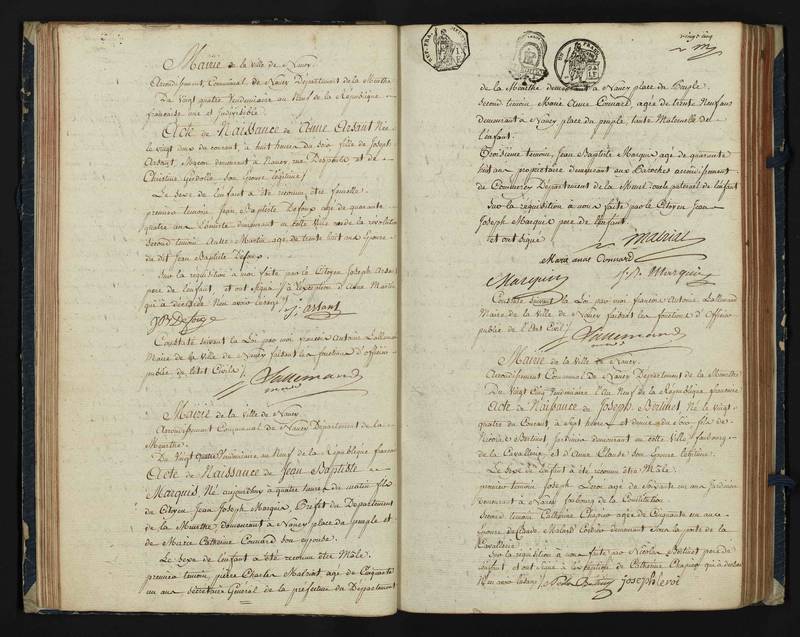 Mairie de la Ville de Nancy
Arrondissement Communal de Nancy Departement de la Meurthe
Du Vingt quatre Vendemiaire an Neuf de la République
française une et indivisible.
Acte de Naissance de Anne Arsant Née
le vingt deux du courant, à huit heures du soir fille de Joseph
Arsant, Maçon demeurant à Nancy, rue et de
Christine son Epouse légitime/.
Le sexe de l'enfant a été reconnu être femelle.
premier temoin, Jean Baptiste Defoux agé de quarante
quatre ans demeurant en cette Ville rue de la révolution
Second temoin Anne Martin agée de trente huit ans Epouse
de dit Jean Baptiste Defoux.
Sur la requisition à moi faite par le Citoyen Joseph Arsant
pere de l'enfant, et ont Signé, à l'exception d'Anne Martin
qui a déclaré Ne avoir l'usage/.
J. arsant
Constaté suivant la Loi par moi françois Antoine Lallemand
Maire de la Ville de Nancy faisant les fonctions d'officier
public de l'état Civil/.
Lallemand
maire
Mairie de la ville de Nancy.
Arrondissement Communal de Nancy Département de la
Meurthe.
Du Vingt quatre Vendemiaire an Neuf de la République française
Acte de Naissance de Jean Baptiste
Marquis, Né aujourd'huy à quatre heures du matin fils
du Citoyen Jean Joseph Marquis, Prefet du Departement
de la Meurthe demeurant à Nancy place du peuple et
de Marie Catherine Connard son epouse.
Le Sexe de l'enfant a été reconnu être Mâle.
premier temoin, pierre Charles agé de Cinquante
un ans secretaire General de la prefecture du Departement
vingt cinq
de la Meurthe demeurant à Nancy place du Peuple
Second temoin Marie Anne Connard, agée de trente Neuf ans
demeurant à Nancy, place du peuple, tante Maternelle de
l'enfant.
Troisieme temoin, Jean Baptiste Marquis agé de quarante
huit ans proprietaire demeurant aux Paroches arrondissement
de Commercy Departement de la Meuse oncle paternel de l'enfant
Sur la requisition à moi faite par le Citoyen Jean
Joseph Marquis pere de l'enfant.
et ont signé
Marie anne Connard
Marquis J. B. Marquis
Constaté suivant la Loi par moi françois Antoine Lallemand
Maire de la Ville de Nancy faisant les fonctions d'Officier
public de l'Etat Civil/.
Lallemand
Mairie de la Ville de Nancy.
Arrondissement Communal de Nancy Departement de la Meurthe
Du Vingt Cinq Vendemiaire l'an Neuf de la République française
Acte de Naissance de Joseph Bertinet Né le Vingt
quatre du Courant, à Sept heures et demie du soir fils de
Nicolas Bertinet Jardinier demeurant en cette Ville faubourg
de la Cavallerie et d'Anne Claude son Epouse légitime.
Le Sexe de l'enfant a été reconnu être Mâle.
premier temoin Joseph Leroi agé de soixante un ans jardinier
demeurant à Nancy faubourg de la Constitution.
Second temoin Catherine Chapier agée de Cinquante un ans
Epouse de Claude Malard demeurant Sous la porte de la
Cavallerie.
Sur la requisition à nous faite par Nicolas Bertinet pere de
l'enfant, et ont signé à l'exception de Catherine Chapier qui a déclaré
Ne en avoir l'usage/. joseph leroi